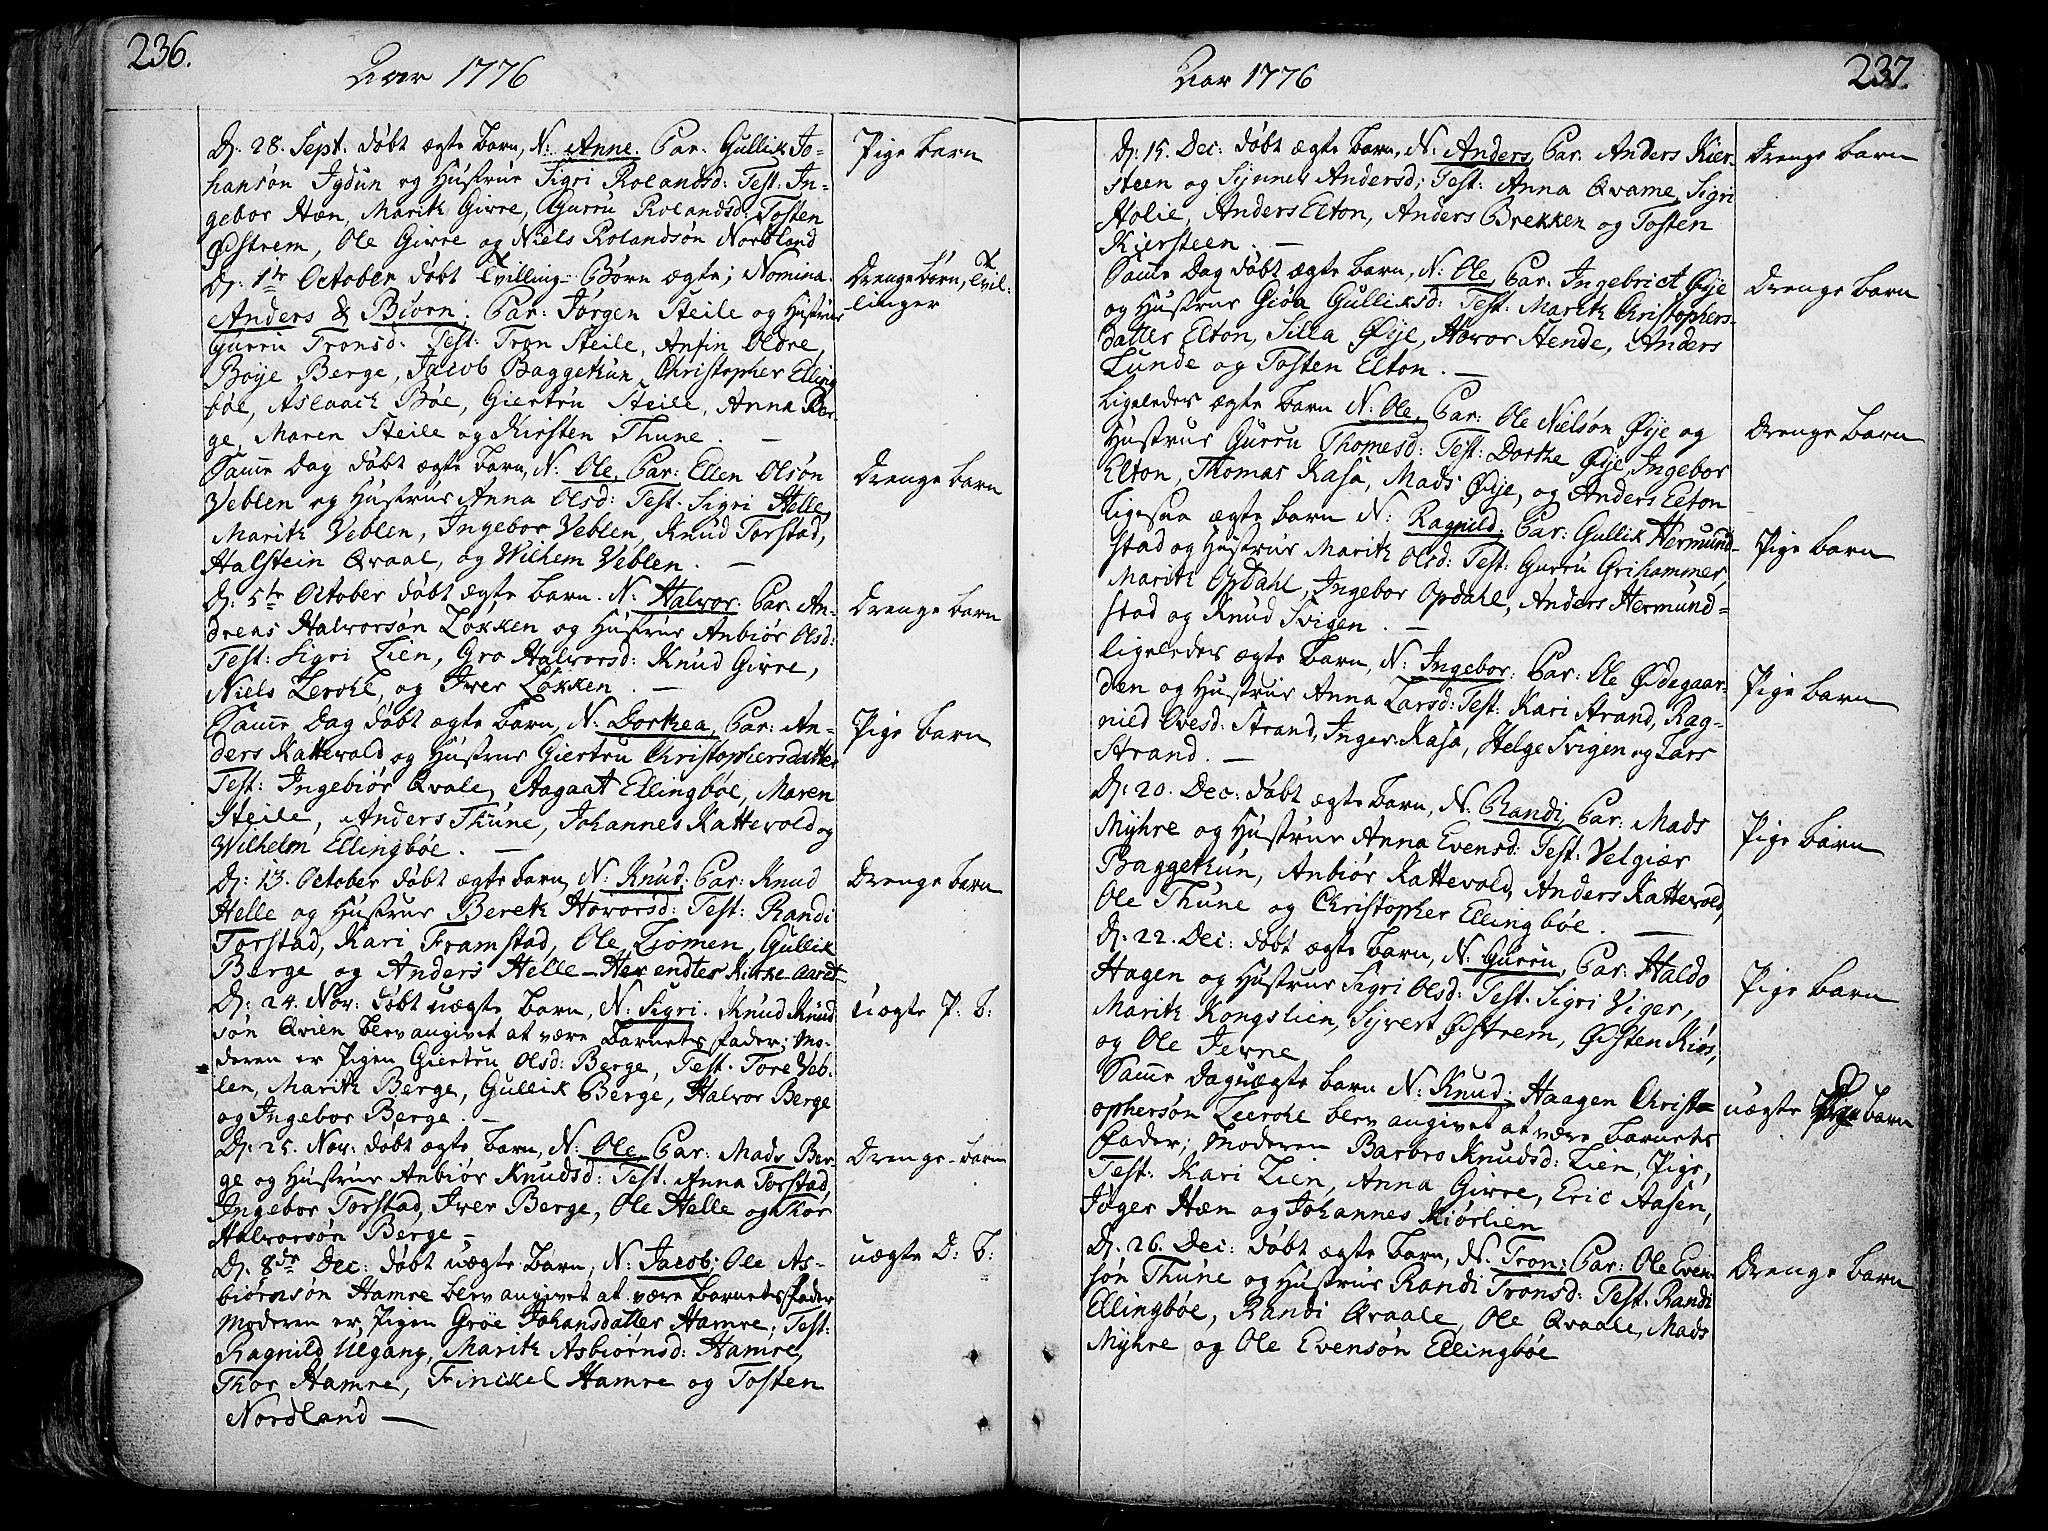 236.
Aar 1776
D. 28. Sept. døbt ægte Barn, N: Anne. Par. Gullik Jo=
hansøn Igdun og Hustrue Sigri Rolandsd: Test: In=
gebor Hæn, Marith Girre, Gurru Rolandsd: Tosten
Østrem, Ole Girre og Niels Rolandsøn Nordland
Pige barn
D. 1te October døbt Tvilling-Børn ægte; Nomina:
Anders & Biørn; Par: Jørgen Steile og Hustrue
Gurru Tronsd: Test: Tron Steile, Anfin Oldre,
Boye Berge, Jacob Baggethun, Christopher Elling
bøe, Aslaach Bøe, Giertru Steile, Anna Ber
ge, Maren Steile og Kirsten Thune. —
Drengebørn, Tvil:
linger
Samme Dag døbt ægte barn, N: Ole, Par: Ellen Olsøn
Veblen og Hustrue Anna Olsd: Test: Sigri Helle,
Marith Veblen, Ingebor Veblen, Knud Torstad,
Halstein Qvaal, og Wilhem Veblen. —
Drenge barn
D: 5te October døbt ægte barn. N: Halvor. Par. An=
dreas Halvorsøn Løkken og Hustrue Anbiør Olsd:
Test: Sigri Lien, Gro Halvorsd: Knud Girre,
Niels Lerohl, og Iver Løkken. —
Drenge barn
Samme Dag døbt ægte barn, N: Dorthea, Par: An=
ders Kattevold og Hustrue Giertru Christophersdatter
Test: Ingebiør Qvale, Aagaat Ellingbøe, Maren
Steile, Anders Thune, Johannes Kattevold og
Wilhelm Ellingbøe. —
Pige barn
D: 13. October døbt ægte barn, N: Knud; Par: Knud
Helle og Hustrue Bereth Hovorsd: Test: Randi
Torstad, Kari Framstad, Ole Tiømen, Gullik
Berge og Anders Helle — Her endtes Kirke-Aaret
Drenge barn
D. 24. Nov: døbt uægte barn, N: Sigri. Knud Knud
søn Qvien blev angivet at være Barnets Fader; Mo=
deren er Pigen Giertru Olsd: Berge, Test. Tore Veb.
len, Marith Berge, Gullik Berge, Halvor Berge
og Ingebor Berge. —
Uægte P: B:
D. 25. Nov: døbt ægte barn, N: Ole, Par: Mads Ber=
ge og Hustrue Anbiør Knudsd: Test. Anna Torstad,
Ingebor Torstad, Iver Berge, Ole Helle og Thor
Halvorsøn Berge —
Drenge-barn
D. 8de Dec: døbt uægte Barn, N: Jacob; Ole As=
biørnsøn Hamre blev angivet at være Barnets Fader
Moderen er Pigen Gróe Johansdatter Hamre; Test:
Ragnild Ulgang, Marith Asbiørnsd: Hamre,
Thor Hamre, Finckel Hamre og Tosten
Nordland —
uægte D: B:
237.
Aar 1776
D. 15. Dec: døbt ægte barn, N: Anders, Par: Anders Kier
steen og Synnev Andersd; Test: Anna Qvame, Sigri
Holie, Anders Elton, Anders Brekken og Tosten
Kiersteen. —
Drenge barn
Samme Dag døbt ægte barn, N: Ole, Par: Ingebrict Øye
og Hustrue Giøa Gulliksd: Test: Marith Christophers-
datter Elton, Silla Øye, Hovor Hende, Anders
Lunde og Tosten Elton. —
Drenge barn
Ligeledes ægte barn N: Ole, Par: Ole Nielsøn Øye og
Hustrue Gurru Thomesd: Test: Dorthe Øye, Ingebor
Elton, Thomas Rasa, Mads Øye, og Anders Elton
Drenge barn
Ligesaa ægte barn N: Ragnild; Par: Gullik Hermund-
stad og Hustrue Marith Olsd: Test: Gurru Grihammer,
Marith Opdahl, Ingebor Opdahl, Anders Hermund=
stad og Knud Svigen. —
Pige barn
Ligeledes ægte barn, N: Ingebor: Par: Ole Ødegaar=
den og Hustrue Anna Larsd: Test: Kari Strand, Rag=
nild Ovesd: Strand, Inger Rasa, Helge Svigen og Lars
Strand. —
Pige barn
D: 20. Dec: døbt ægte barn, N: Randi, Par: Mads
Myhre og Hustrue Anna Evensd: Test: Velgiær
Baggethun, Anbiør Kattevold, Anders Kattevold,
Ole Thune og Christopher Ellingbøe. —
Pige barn
D. 22. Dec: døbt ægte barn, N: Gurru, Par: Haldo
Hagen og Hustrue Sigri Olsd: Test: Sigri Viger,
Marith Kongslien, Syvert Østrem, Østen Kiøs,
og Ole Jerne
Pige barn
Samme Dag uægte barn N: Knud; Haagen Christ=
ophersøn Leerohl blev angivet at være barnets
Fader; Moderen Barbro Knudsd: Lien, Pige,
Test: Kari Lien, Anna Girre, Eric Aasen,
Jøger Hæn og Johannes Kiørlien
uægte barn
D. 26. Dec: døbt ægte barn, N. Tron; Par: Ole Even
søn Thune og Hustrue Randi Tronsd: Test: Randi
Ellingbøe, Randi Qvaale, Ole Qvaale, Mads
Myhre og Ole Evensøn Ellingbøe
Drenge barn